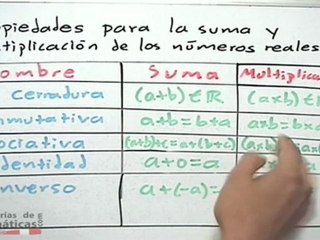 opiedades para la suma y
tiplicación de los números reales
ombre Suma Multiplica
cerradura (a+b)∈ℝ (axb)∈ℝ
nmutativa a+b=b+a axb=bx
ociativa (a+b)+c=a+(b+c) (axb)
dentidad a+0=a
nverso a+(-a)=
rías de
máticas